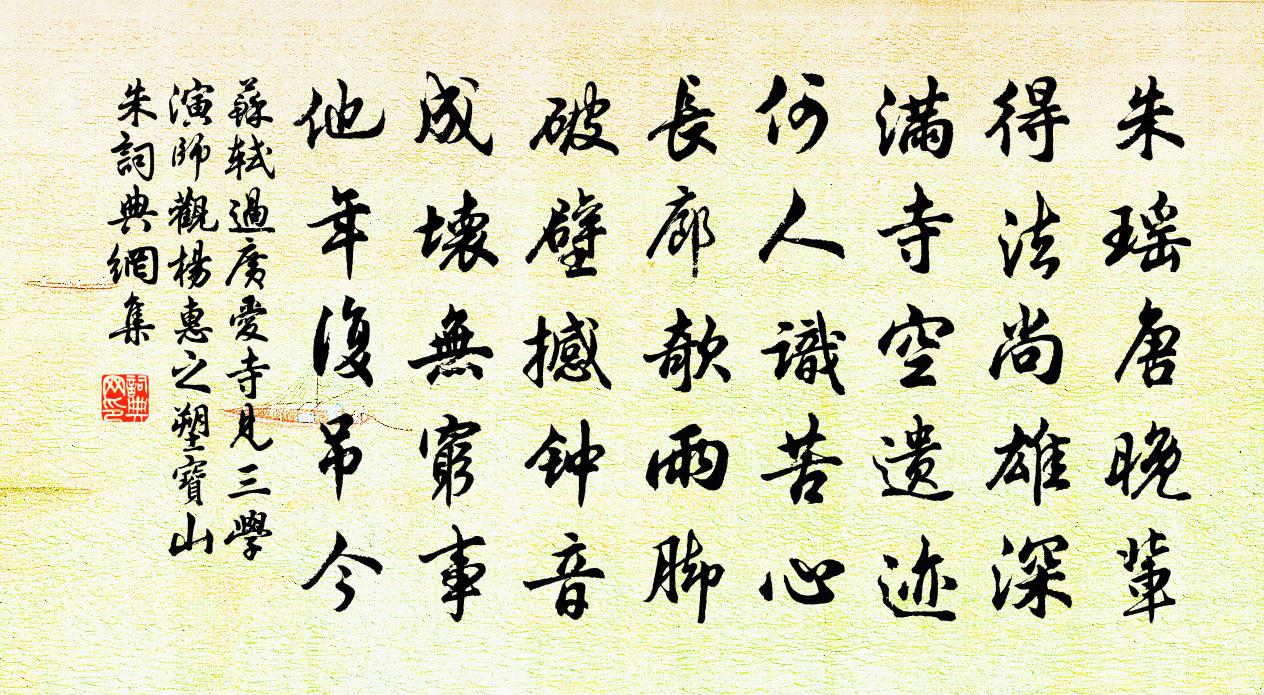 朱瑶唐晚輩
得法尚雄深
滿寺空遗迹
何人識苦心
長廊欹雨脚
破壁撼钟音
成壞無窮事
他年復吊今
蘇軾過廣愛寺見三學
演師觀楊惠之塑寶山
朱詞典網集
詞典网印